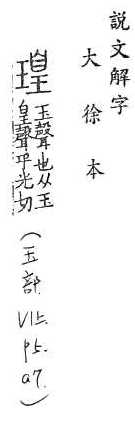 說文解字
大徐本
瑝
玉聲也从玉
皇聲乎光切
（玉部
VI上.
p5.
a7.）